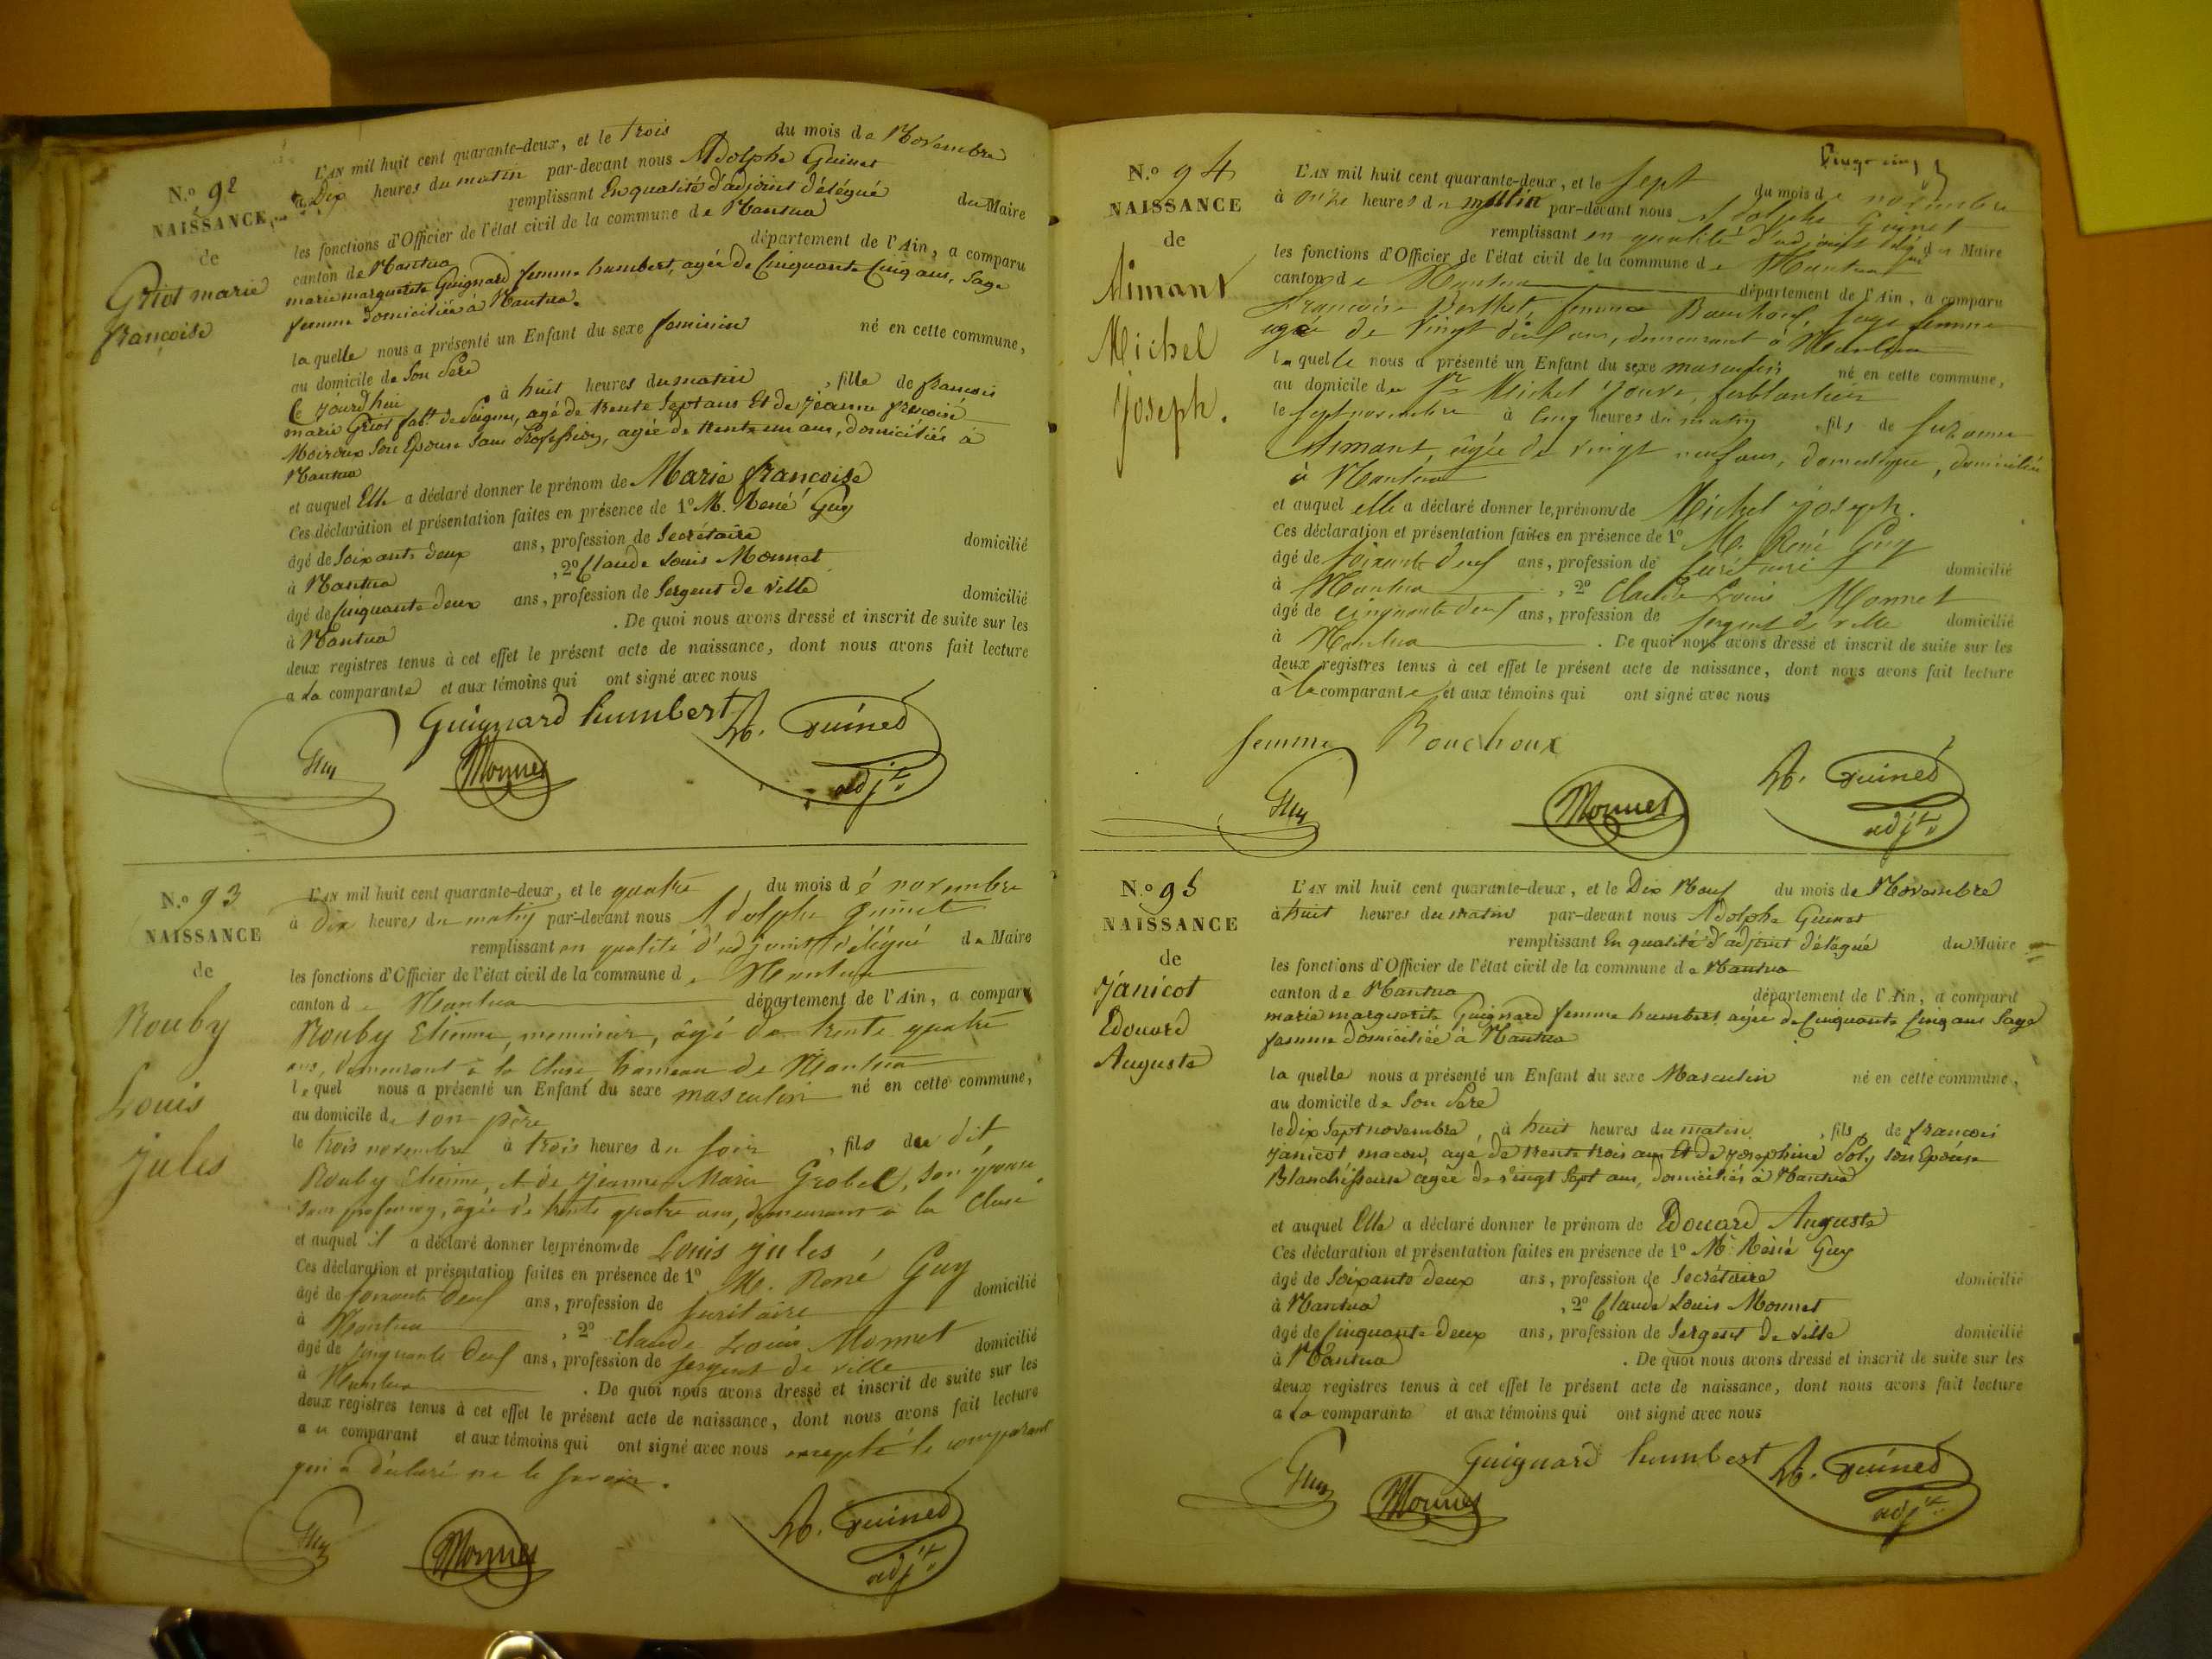 N.o 92
NAISSANCE
de
Griot marie
françoise
L'AN mil huit cent quarante-deux, et le trois du mois de Novembre
à Dix heures du matin par-devant nous Adolphe Guinet
remplissant En qualité d'adjoint délégué du Maire
les fonctions d'Officier de l'état civil de la commune de Nantua
canton de Nantua département de l'Ain, a comparu
marie marguerite Guignard femme humbert, agée de Cinquante Cinq ans, Sage
femme domiciliée à Nantua.
laquelle nous a présenté un Enfant du sexe feminin né en cette commune,
au domicile de Son Père
Ce jourd'hui à huit heures du matin, fille de francois
marie Griot fabt. de Peignes, agé de trente Sept ans Et de jeanne francoise
Moiroux Son Epouse Sans Profession, agée de trente un ans, domiciliés à
Nantua
et auquel Elle a déclaré donner le prénom de Marie françoise
Ces déclaration et présentation faites en présence de 1o M. René Guy
âgé de Soixante deux ans, profession de Secrétaire domicilié
à Nantua, 2o Claude Louis Monnet
âgé de Cinquante deux ans, profession de Sergent de ville domicilié
à Nantua. De quoi nous avons dressé et inscrit de suite sur les
deux registres tenus à cet effet le présent acte de naissance, dont nous avons fait lecture
a la comparante et aux témoins qui ont signé avec nous
Guignard humbert A. Guinet
Guy Monnet adjt.
N.o 93
NAISSANCE
de
Rouby
Louis
Jules
L'AN mil huit cent quarante-deux, et le quatre du mois de novembre
à Dix heures du matin par-devant nous Adolphe Guinet
remplissant en qualité d'adjoint délégué du Maire
les fonctions d'Officier de l'état civil de la commune de Nantua
canton de Nantua département de l'Ain, a comparu
Rouby Etienne, menuisier, âgé de trente quatre
ans, demeurant à la Cluse hameau de Nantua
lequel nous a présenté un Enfant du sexe masculin né en cette commune,
au domicile de son père
le trois novembre à trois heures du soir, fils du dit
Rouby Etienne, et de Jeanne Marie Grobel, son épouse,
sans profession, âgée de trente quatre ans, demeurant à la Cluse
et auquel il a déclaré donner les prénoms de Louis Jules
Ces déclaration et présentation faites en présence de 1o M. René Guy
âgé de soixante deux ans, profession de secrétaire domicilié
à Nantua, 2o Claude Louis Monnet
âgé de cinquante deux ans, profession de sergent de ville domicilié
à Nantua. De quoi nous avons dressé et inscrit de suite sur les
deux registres tenus à cet effet le présent acte de naissance, dont nous avons fait lecture
au comparant et aux témoins qui ont signé avec nous excepté le comparant
qui a déclaré ne le savoir.
Guy Monnet A. Guinet adjt.
N.o 94
NAISSANCE
de
Aimant
Michel
Joseph.
L'AN mil huit cent quarante-deux, et le sept du mois de novembre
à onze heures du matin par-devant nous Adolphe Guinet
remplissant en qualité d'adjoint délégué du Maire
les fonctions d'Officier de l'état civil de la commune de Nantua
canton de Nantua département de l'Ain, a comparu
Françoise Berthet, femme Bouchoux, sage femme
agée de vingt deux ans, demeurant à Nantua
laquelle nous a présenté un Enfant du sexe masculin né en cette commune,
au domicile du Sr Michel Jouve, ferblantier
le sept novembre à cinq heures du matin, fils de Suzanne
Aimant, âgée de vingt neuf ans, domestique, domiciliée
à Nantua
et auquel elle a déclaré donner les prénoms de Michel Joseph.
Ces déclaration et présentation faites en présence de 1o M. René Guy
âgé de soixante deux ans, profession de secrétaire domicilié
à Nantua, 2o Claude Louis Monnet
âgé de cinquante deux ans, profession de sergent de ville domicilié
à Nantua. De quoi nous avons dressé et inscrit de suite sur les
deux registres tenus à cet effet le présent acte de naissance, dont nous avons fait lecture
à la comparante et aux témoins qui ont signé avec nous
femme Bouchoux
Guy Monnet A. Guinet adjt.
N.o 95
NAISSANCE
de
Janicot
Edouard
Auguste
L'AN mil huit cent quarante-deux, et le Dix Neuf du mois de Novembre
à huit heures du matin par-devant nous Adolphe Guinet
remplissant En qualité d'adjoint délégué du Maire
les fonctions d'Officier de l'état civil de la commune de Nantua
canton de Nantua département de l'Ain, a comparu
marie marguerite Guignard femme humbert agée de Cinquante Cinq ans Sage
femme domiciliée à Nantua
laquelle nous a présenté un Enfant du sexe Masculin né en cette commune,
au domicile de Son Père
le dix Sept novembre, à huit heures du matin, fils de francois
Janicot macon, agé de trente trois ans Et de Josephine Poly Son Epouse
Blanchisseuse agée de vingt Sept ans, domiciliés à Nantua
et auquel Elle a déclaré donner le prénom de Edouard Auguste
Ces déclaration et présentation faites en présence de 1o Mr. Réné Guy
âgé de Soixante deux ans, profession de Secrétaire domicilié
à Nantua, 2o Claude Louis Monnet
âgé de Cinquante deux ans, profession de Sergent de ville domicilié
à Nantua. De quoi nous avons dressé et inscrit de suite sur les
deux registres tenus à cet effet le présent acte de naissance, dont nous avons fait lecture
a la comparante et aux témoins qui ont signé avec nous
Guignard humbert A. Guinet
Guy Monnet adjt.